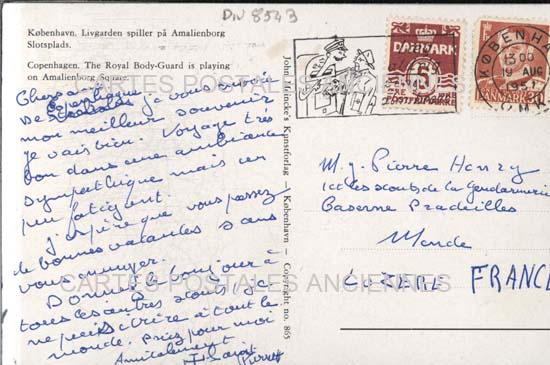 DIV 8543
København. Livgarden spiller på Amalienborg
Slotsplads.
Copenhagen. The Royal Body-Guard is playing
on Amalienborg Square.
Chers amis
De Copenhague je vous envoie
mon meilleur souvenir
Je vais bien. Voyage très
bon dans une ambiance
sympathique mais un
peu fatigent.
J'espère que vous passez
de bonnes vacances sans
vous ennuyer.
Donnez le bonjour à
tous les autres scouts, je
ne puis écrire à tout le
monde. Priez pour moi
Amicalement
John Meincke's Kunstforlag - København - Copyright no. 865
DANMARK
15
KØBENHAVN
13 00
19 AUG
195
DANMARK
M. Pierre Henry
les scouts de la Gendarmerie
Caserne Pradeilles
Mende
LOZÈRE FRANCE
CARTES POSTALES ANCIENNES
CARTES POSTALES ANCIENNES